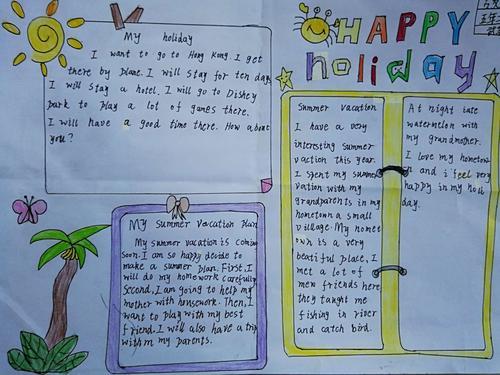 My holiday
I want to go to Hong Kong. I get
there by plane. I will stay for ten days
I will stay a hotel. I will go to Disney
park to play a lot of games there.
I will have a good time there. How about
you?
HAPPY
holiday
Summer vacation
I have a very
interesting summer
vaction this year.
I spent my summer
vation with my
grandparents in my
hometown a small
village. My homet
own is a very
beatiful place, I
met a lot of
men friends here
they taught me
fishing in river
and catch bird.
At night iate
watermelon with
my grandmother.
I love my hometow
n and i feel very
happy in my holi
day.
My Summer vacation Plan
My summer vacation is coming
soon. I am so happy decide to
make a summer plan. First, I
will do my homework carefully
Second, I am going to help my
mother with housework. Then, I
want to play with my best
friend. I will also have a trip
with m my parents.